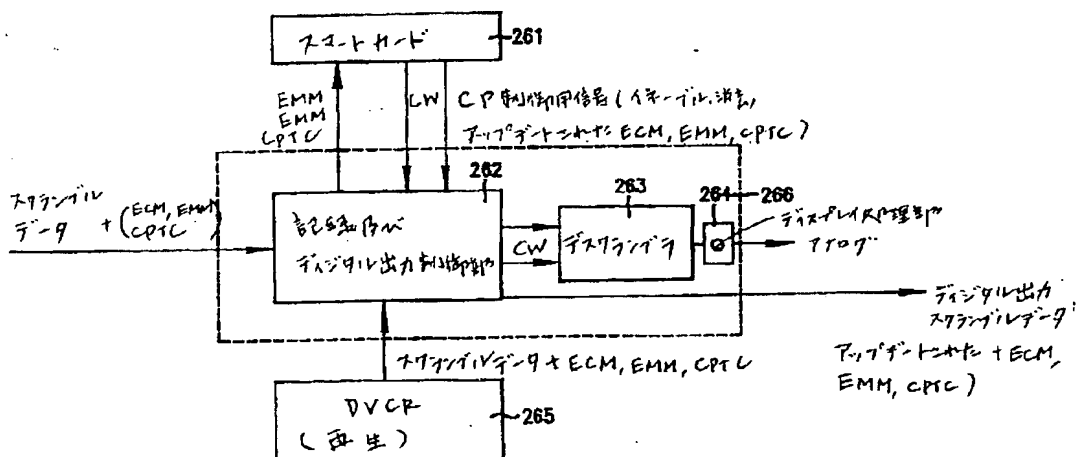 スマートカード
261
EMM
EMM
CPTC
CW
CP制御用信号(イネーブル,消去,
アップデートされたECM, EMM, CPTC)
スクランブル
データ +(ECM, EMM
CPTC)
262
記録及び
ディジタル出力制御部
CW
263
デスクランブラ
264
266
ディスプレイ処理部
アナログ
ディジタル出力
スクランブルデータ
アップデートされた + ECM,
EMM, CPTC)
スクランブルデータ + ECM, EMM, CPTC
DVCR
(再生)
265